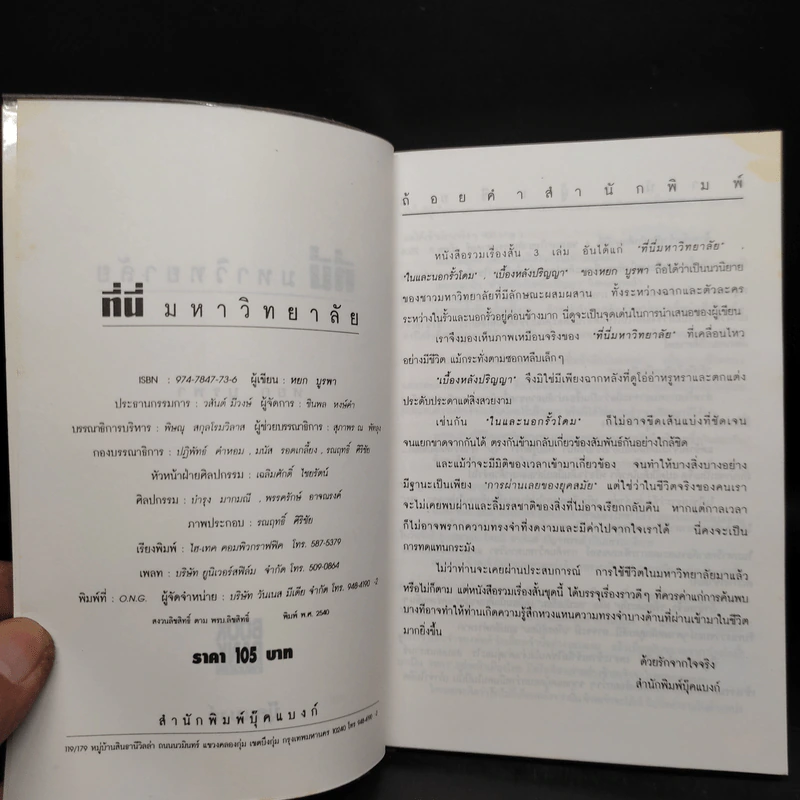 ที่นี่ มหาวิทยาลัย
ISBN : 974-7847-73-6 ผู้เขียน : หยก บูรพา
ประธานกรรมการ : วสันต์ มีวงษ์ ผู้จัดการ : ชินพล หงษ์คำ
บรรณาธิการบริหาร : พิษณุ สกุลโรมวิลาส ผู้ช่วยบรรณาธิการ : สุภาพร ณ พัทลุง
กองบรรณาธิการ : ปฏิพัทธ์ คำหอม , มนัส รอดเกลี้ยง , รณฤทธิ์ ศิริชัย
หัวหน้าฝ่ายศิลปกรรม : เฉลิมศักดิ์ ไชยรัตน์
ศิลปกรรม : บำรุง มากมณี , พรรครักษ์ อาจณรงค์
ภาพประกอบ : รณฤทธิ์ ศิริชัย
เรียงพิมพ์ : ไฮ-เทค คอมพิวกราฟฟิค โทร. 587-5379
เพลท : บริษัท ยูนิเวอร์สฟิล์ม จำกัด โทร. 509-0864
พิมพ์ที่ : O.N.G. ผู้จัดจำหน่าย : บริษัท วันเนส มีเดีย จำกัด โทร. 948-4190 -2
สงวนลิขสิทธิ์ ตาม พรบ.ลิขสิทธิ์ พิมพ์ พ.ศ. 2540
ราคา 105 บาท
สำนักพิมพ์บุ๊คแบงก์
119/179 หมู่บ้านสินธานีวิลล่า ถนนนวมินทร์ แขวงคลองกุ่ม เขตบึงกุ่ม กรุงเทพมหานคร 10240 โทร 948-4190 -2
ถ้อยคำสำนักพิมพ์
หนังสือรวมเรื่องสั้น 3 เล่ม อันได้แก่ "ที่นี่มหาวิทยาลัย"
"ในและนอกรั้วโดม" , "เบื้องหลังปริญญา" ของหยก บูรพา ถือได้ว่าเป็นนวนิยาย
ของชาวมหาวิทยาลัยที่มีลักษณะผสมผสาน ทั้งระหว่างฉากและตัวละคร
ระหว่างในรั้วและนอกรั้วอยู่ค่อนข้างมาก นี่ดูจะเป็นจุดเด่นในการนำเสนอของผู้เขียน
เราจึงมองเห็นภาพเหมือนจริงของ "ที่นี่มหาวิทยาลัย" ที่เคลื่อนไหว
อย่างมีชีวิต แม้กระทั่งตามซอกหลืบเล็กๆ
"เบื้องหลังปริญญา" จึงมิใช่มีเพียงฉากหลังที่ดูโอ่อ่าหรูหราและตกแต่ง
ประดับประดาแต่สิ่งสวยงาม
เช่นกัน "ในและนอกรั้วโดม" ก็ไม่อาจขีดเส้นแบ่งที่ชัดเจน
จนแยกขาดจากกันได้ ตรงกันข้ามกลับเกี่ยวข้องสัมพันธ์กันอย่างใกล้ชิด
และแม้ว่าจะมีมิติของเวลาเข้ามาเกี่ยวข้อง จนทำให้บางสิ่งบางอย่าง
มีฐานะเป็นเพียง "การผ่านเลยของยุคสมัย" แต่ใช่ว่าในชีวิตจริงของคนเรา
จะไม่เคยพบผ่านและลิ้มรสชาติของสิ่งที่ไม่อาจเรียกกลับคืน หากแต่กาลเวลา
ก็ไม่อาจพรากความทรงจำที่งดงามและมีค่าไปจากใจเราได้ นี่คงจะเป็น
การทดแทนกระมัง
ไม่ว่าท่านจะเคยผ่านประสบการณ์ การใช้ชีวิตในมหาวิทยาลัยมาแล้ว
หรือไม่ก็ตาม แต่หนังสือรวมเรื่องสั้นชุดนี้ ได้บรรจุเรื่องราวดีๆ ที่ควรค่าแก่การค้นพบ
บางทีอาจทำให้ท่านเกิดความรู้สึกหวงแหนความทรงจำบางด้านที่ผ่านเข้ามาในชีวิต
มากยิ่งขึ้น
ด้วยรักจากใจจริง
สำนักพิมพ์บุ๊คแบงก์